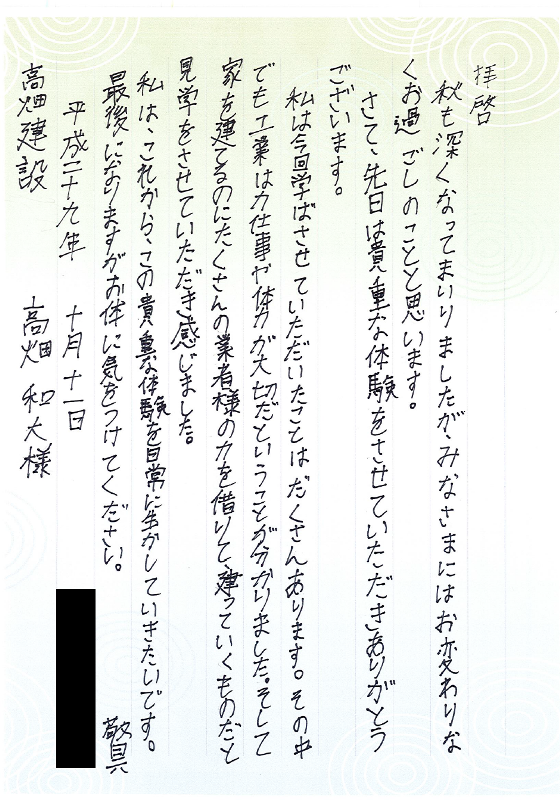 拝啓
秋も深くなってまいりましたが、みなさまにはお変わりな
くお過ごしのことと思います。
さて、先日は貴重な体験をさせていただきありがとう
ございます。
私は今回学ばさせていただいたことはたくさんあります。その中
でも工業は力仕事や体力が大切だということが分かりました。そして
家を建てるのにたくさんの業者様の力を借りて、建っていくものだと
見学をさせていただき感じました。
私は、これから、この貴重な体験を日常に生かしていきたいです。
最後になりますがお体に気をつけてください。
敬具
平成二十九年 十月十一日
高畑建設 高畑和大様